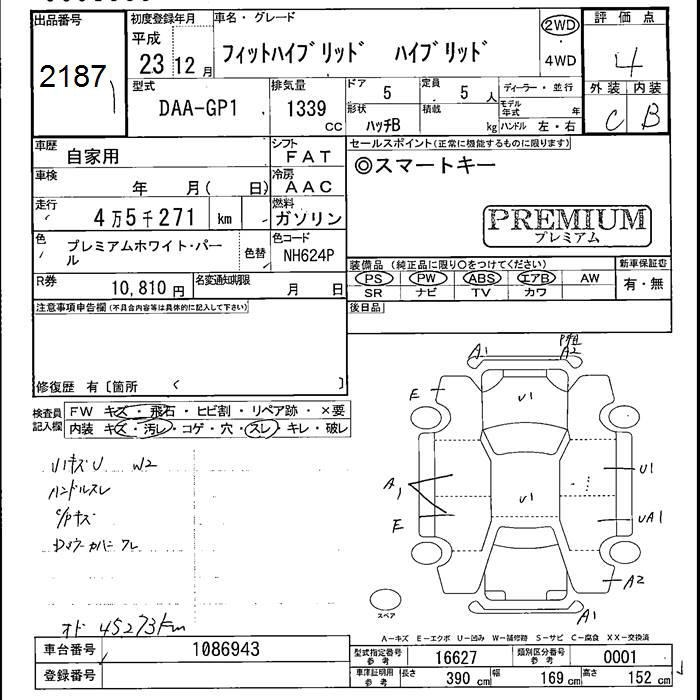 出品番号
2187
初度登録年月
平成
23 12 月
車名・グレード
フィットハイブリッド ハイブリッド
2WD
4WD
評価点
4
外装 内装
C B
型式
DAA-GP1
排気量
1339
CC
ドア
5
定員
5 人
形状
ハッチB
積載
kg
ディーラー・並行
モデル年式 年
ハンドル 左・右
車歴
自家用
シフト
FAT
車検
年 月( 日)
冷房
AAC
走行
4万5千271 km
燃料
ガソリン
色
プレミアムホワイト・パール
色替
色コード
NH624P
R券
10,810 円
名変通知期限
月 日
セールスポイント(正常に機能するものに限ります)
◎スマートキー
PREMIUM
プレミアム
装備品 (純正品に限り○をつけてください)
新車保証書
PS PW ABS エアB AW
有・無
SR ナビ TV カワ
後日品
注意事項申告欄(不具合内容等は具体的に記入して下さい)
修復歴 有〔箇所 〕
検査員
記入欄
FW キズ・飛石・ヒビ割・リペア跡・×要
内装 キズ・汚レ・コゲ・穴・スレ・キレ・破レ
W2
ハンドルスレ
オド 45273km
A1
A2
E
U1
A1
U1
U1
E
UA1
A2
A1
スペア
A-キズ E-エクボ U-凹み W-補修跡 S-サビ C-腐食 XX-交換済
車台番号
1086943
登録番号
型式指定番号
参考
16627
類別区分番号
参考
0001
車検証明用
参考
長さ 390 cm 幅 169 cm 高さ 152 cm